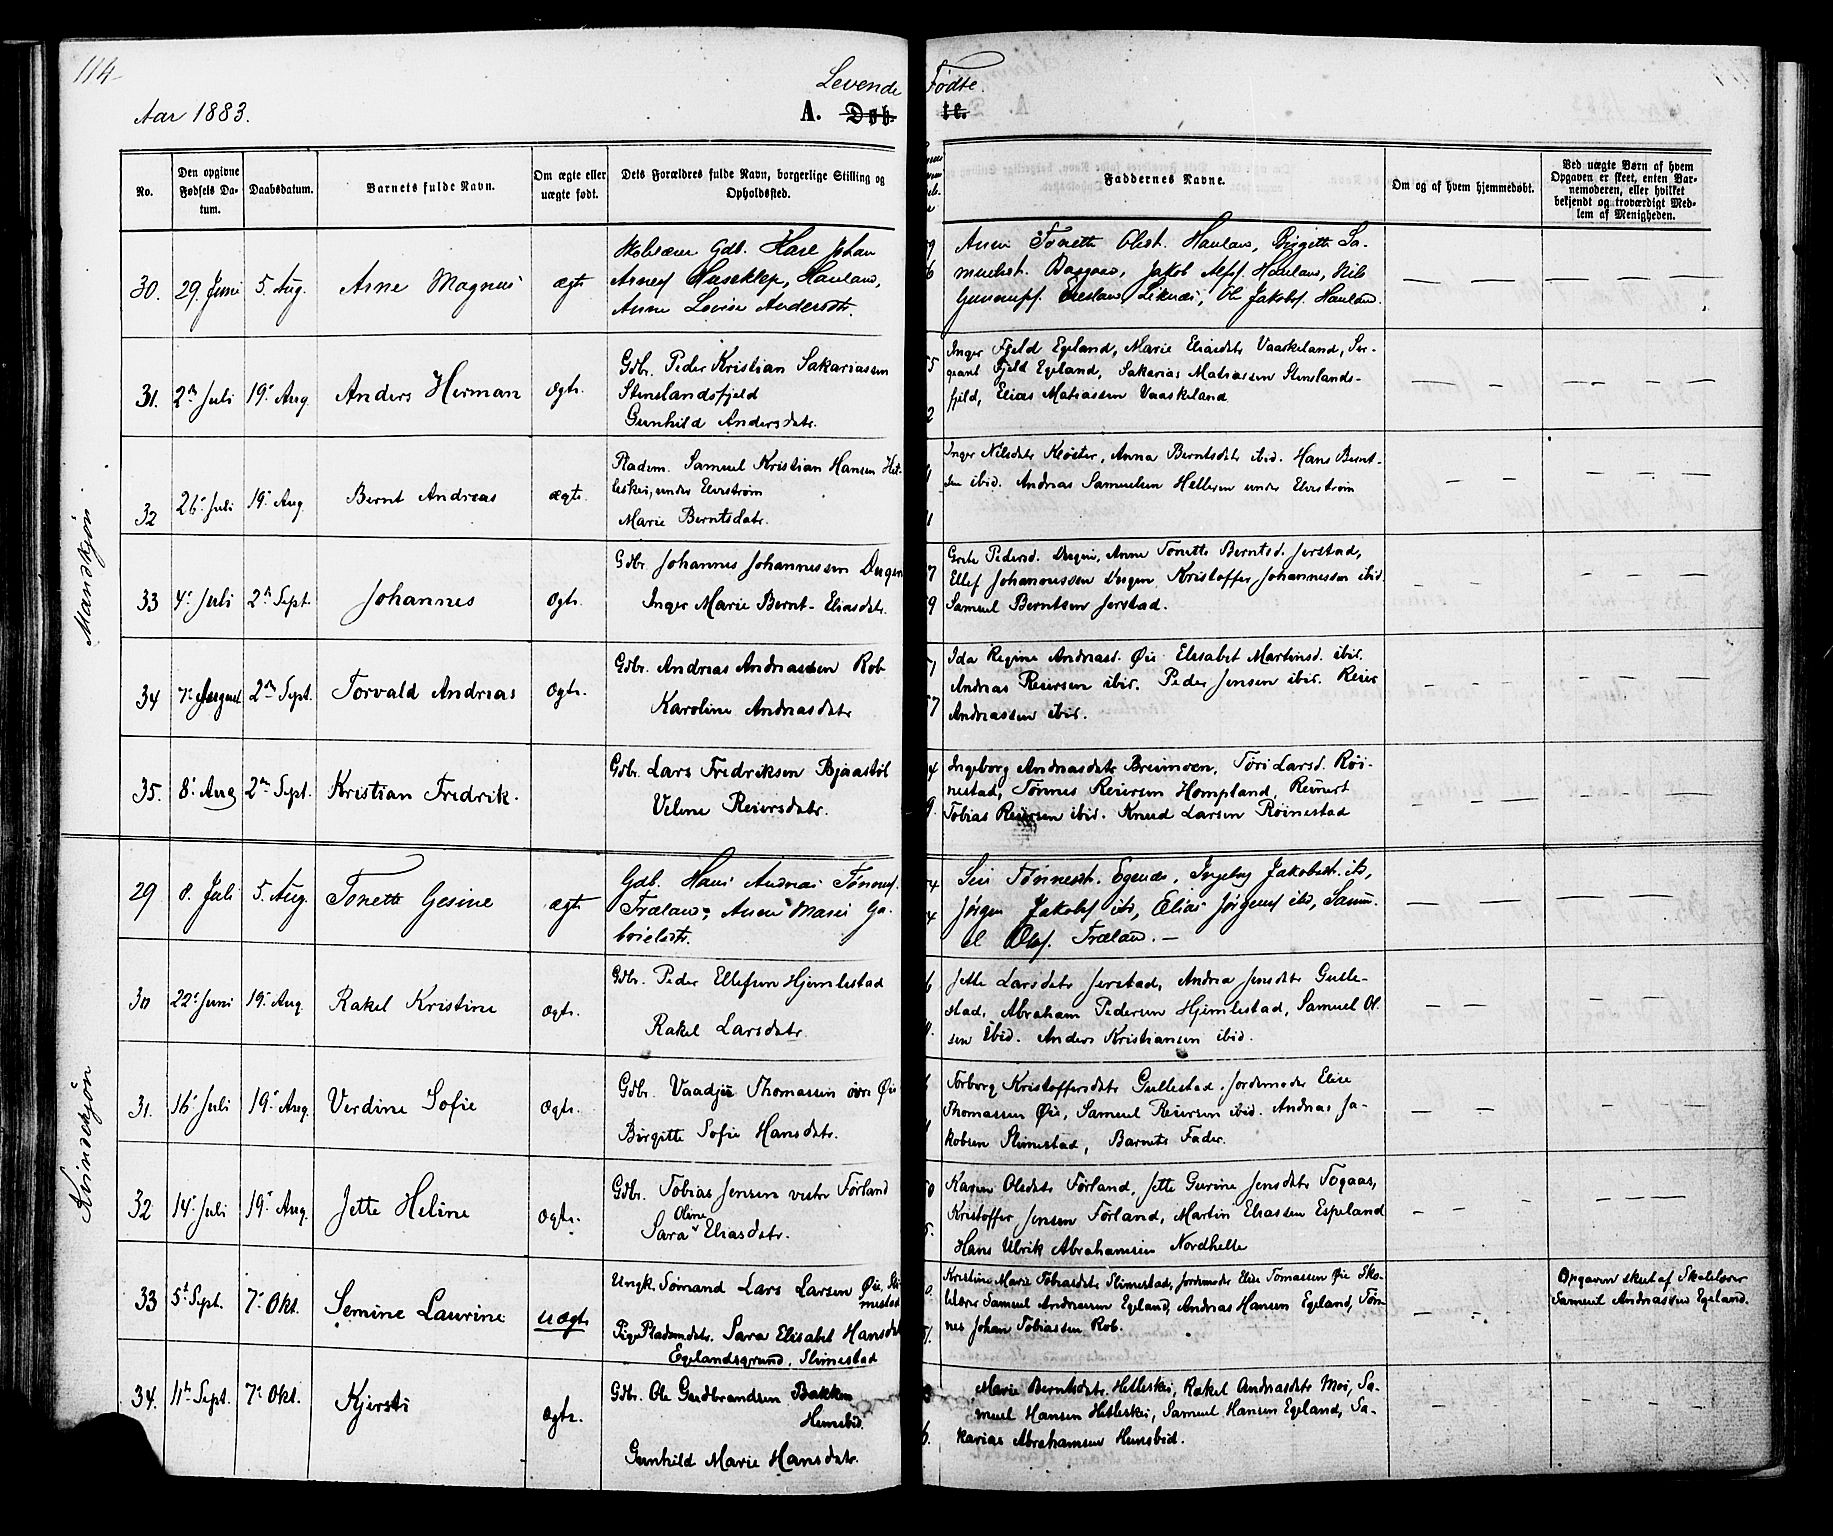 114
Levende Fødte.
Aar 1883.
A. Døb- te.
No.
Den opgivne Fødsels Da-
tum.
Daabsdatum.
Barnets fulde Navn.
Om ægte eller
uægte født.
Dets Forældres fulde Navn, borgerlige Stilling og
Opholdssted.
Faddernes Navne.
Om og af hvem hjemmedøbt.
Ved uægte Børn af hvem
Opgaven er skeet, enten Bar-
nemoderen, eller hvilket
bekjendt og troværdigt Med-
lem af Menigheden.
Mandkjøn
30. 29. Juni 5. Aug. Arne Magnus ægte
Gdb. Johan
Anne Lovise Andersdtr.
Anne Tonette Olsdt. Hauland, Birgitte Sa-
Jakob Hauland, Nils
Ole Jakobs. Hauland.
31. 2den Juli 19. Aug Anders Herman Ægte.
Gdbr. Peder Kristian Sakariassen
Stenslandsfjeld
Gunhild Andersdatr.
Inger Fjeld Egeland, Marie Eliasdatr Vaaskeland, Ser-
geant Fjeld Egeland, Sakarias Matiassen Stenslands-
fjeld, Elias Matiassen Vaaskeland
32 26. Juli 19. Aug Bernt Andreas ægte.
Pladsm. Samuel Kristian Hansen Het-
leskei, under Elvestrøm
Marie Berntsdatr.
Inger Nilsdatr Kloster, Anna Berntsdatr ibid. Hans Bernt-
sen ibid. Andreas Samuelsen Helleren under Elvestrøm
33 4. Juli 2den Sept. Johannes Ægte.
Gdbr. Johannes Johannessen
Inger Marie Bernt-Eliasdatr.
Grete Pedersd. Anne Tonette Berntsd. Jerstad,
Ellef Johannessen Kristoffer Johannessen ibid.
Samuel Berntsen Jerstad.
34 7. August 2den Sept. Torvald Andreas Ægte.
Gdbr. Andreas Andreassen Rob
Karoline Andreasdatr
Ida Regine Andreasd. Øie Elisabet Martinsd. ibid.
Andreas Reiersen ibid. Peder Jensen ibid. Reier
Andreassen ibid.
35. 8. Aug 2den Sept. Kristian Fredrik.
Gdbr. Lars Fredriksen Bjaastøl
Veline Reiersdatr.
Ingeborg Andreasdatr Breimoen, Tøri Larsd. Røi-
nestad, Tønnes Reiersen Hompland, Reinert
Tobias Reiersen ibid. Knud Larsen Røinestad
Kvindekjøn
29 8. Juli 5. Aug. Tonette Gesine ægte
Gdb. Hans Andreas Tønness.
Træland, Anne Marie Ga-
brielsdtr.
Siri Tønnesdt. Egenæs, Ingeborg Jakobsdt. ibd,
Jørgen Jakobs. ibd, Elias Jørgens. ibd, Samu-
el Ols. Træland.
30 22. Juni 19. Aug. Rakel Kristine Ægte.
Gdbr. Peder Ellefsen Hjemlestad
Rakel Larsdatr.
Jette Larsdatr Jerstad, Andrea Jensdatr Gulle-
stad, Abraham Pedersen Hjemlestad, Samuel Ol-
sen ibid. Anders Kristiansen ibid.
31. 16. Juli 19. Aug. Verdine Sofie Ægte.
Gdbr Vaadjer Thomassen Øie
Birgitte Sofie Hansdatr.
Torborg Kristoffersdatr Gullestad, Jordemoder Elise
Thomassen Øie, Samuel Reiersen ibid. Andreas Ja-
kobsen Slimestad, Barnets Fader.
32 14. Juli 19. Aug. Jette Heline Ægte.
Gdbr. Tobias Jensen vestr Førland
Oline
Sara Eliasdatr.
Karen Olsdatr Førland, Jette Gurine Jensdatr Togaas,
Kristoffer Jensen Førland, Martin Eliassen Espeland
Hans Ulrik Abrahamsen Nordhelle
33 5te Sept. 7. Okt. Semine Laurine uægte
Ungk. Sømand Lars Larsen Øie, Sli
mestad
Pige Pladsmdatr. Sara Elisabet Hansdatr
Egelandsgrund, Slimestad
Kristine Marie Tobiasdatr Slimestad, Jordemoder Elise Tomassen Øie Sko-
lelærer Samuel Andreassen Egeland, Andreas Hansen Egeland, Tøn-
nes Johan Tobiassen Rob.
Opgaven skeet af Skolelærer
Samuel Andreassen Egeland.
34. 11te Sept. 7. Okt. Kjersti Ægte.
Gdbr. Ole Gudbrandsen Bakken
Hunsbid.
Gunhild Marie Hansdatr.
Marie Berntsdatr. Hetleskei, Rakel Andreasdatr Moi, Sa-
muel Hansen Hetleskei, Samuel Hansen Egeland, Sa-
karias Abrahamsen Hunsbid.